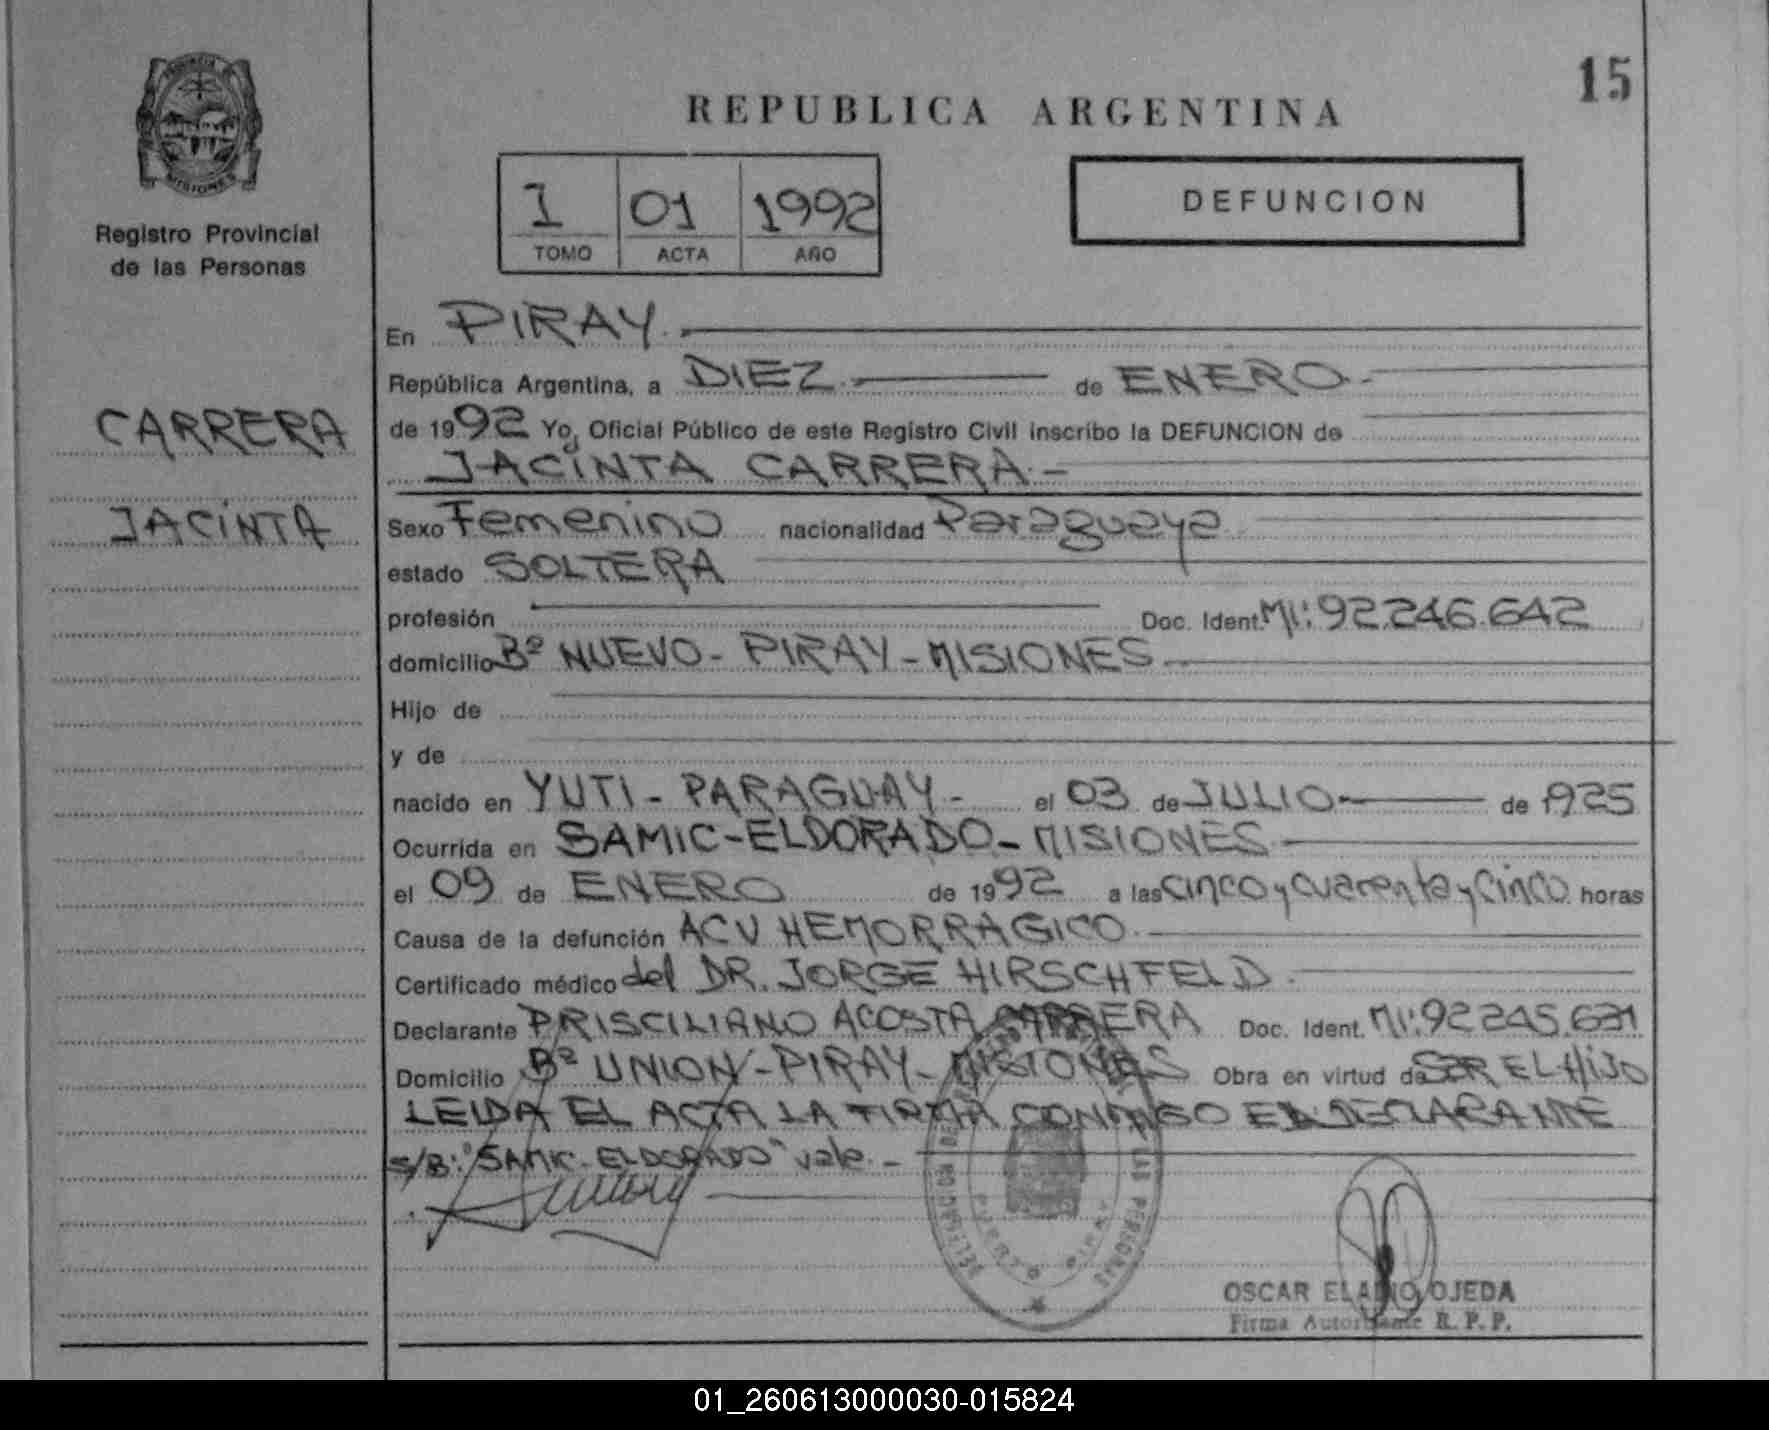 15
PROVINCIA DE
MISIONES
Registro Provincial
de las Personas
REPUBLICA ARGENTINA
I 01 1992
TOMO ACTA AÑO
DEFUNCION
CARRERA
JACINTA
En PIRAY.
República Argentina, a DIEZ.- de ENERO.-
de 1992 Yo, Oficial Público de este Registro Civil inscribo la DEFUNCION de
JACINTA CARRERA.-
Sexo Femenino nacionalidad Paraguaya
estado SOLTERA
profesión Doc. Ident. MI: 92.246.642
domicilio Bº NUEVO - PIRAY - MISIONES
Hijo de
y de
nacido en YUTI - PARAGUAY - el 03 de JULIO de 1925
Ocurrida en SAMIC-ELDORADO - MISIONES
el 09 de ENERO de 1992 a las cinco y cuarenta y cinco horas
Causa de la defunción ACV HEMORRAGICO.
Certificado médico del DR. JORGE HIRSCHFELD.
Declarante PRISCILIANO ACOSTA CARRERA Doc. Ident. MI: 92245.631
Domicilio Bº UNION - PIRAY - MISIONES Obra en virtud de SER EL HIJO
LEIDA EL ACTA LA FIRMA CONMIGO EL DECLARANTE
S/B: "SAMIC - ELDORADO" vale. -
LAS PERSONAS
PUERTO PIRAY
OSCAR ELADIO OJEDA
Firma Autorizante R. P. P.
01_260613000030-015824